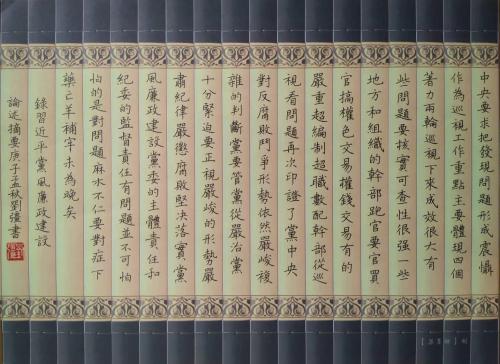 中央要求把發現問題形成震懾
作為巡視工作重點主要體現四個
著力兩輪巡視下來成效很大有
些問題要核實可查性很強一些
地方和組織的幹部跑官要官買
官搞權色交易權錢交易有的
嚴重超編制超職數配幹部從巡
視看問題再次印證了黨中央
對反腐敗鬥爭形勢依然嚴峻複
雜的判斷黨要管黨從嚴治黨
十分緊迫要正視嚴峻的形勢嚴
肅紀律嚴懲腐敗堅決落實黨
風廉政建設黨委的主體責任和
紀委的監督責任有問題並不可怕
怕的是對問題麻木不仁要對症下
藥亡羊補牢未為晚矣
錄習近平黨風廉政建設
論述摘要庚子孟秋劉彊書